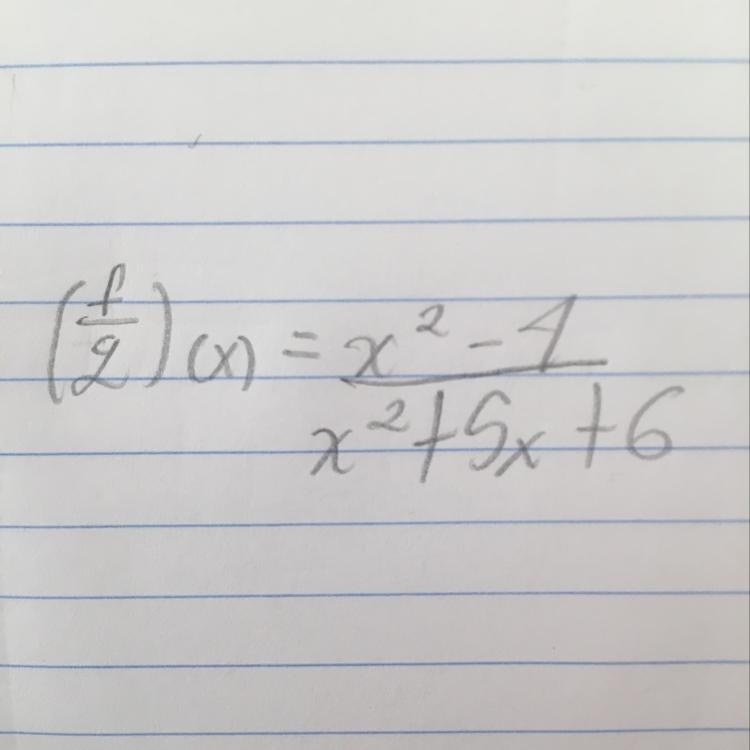 (f/g)(x) = (x² - 4)/(x² + 5x + 6)